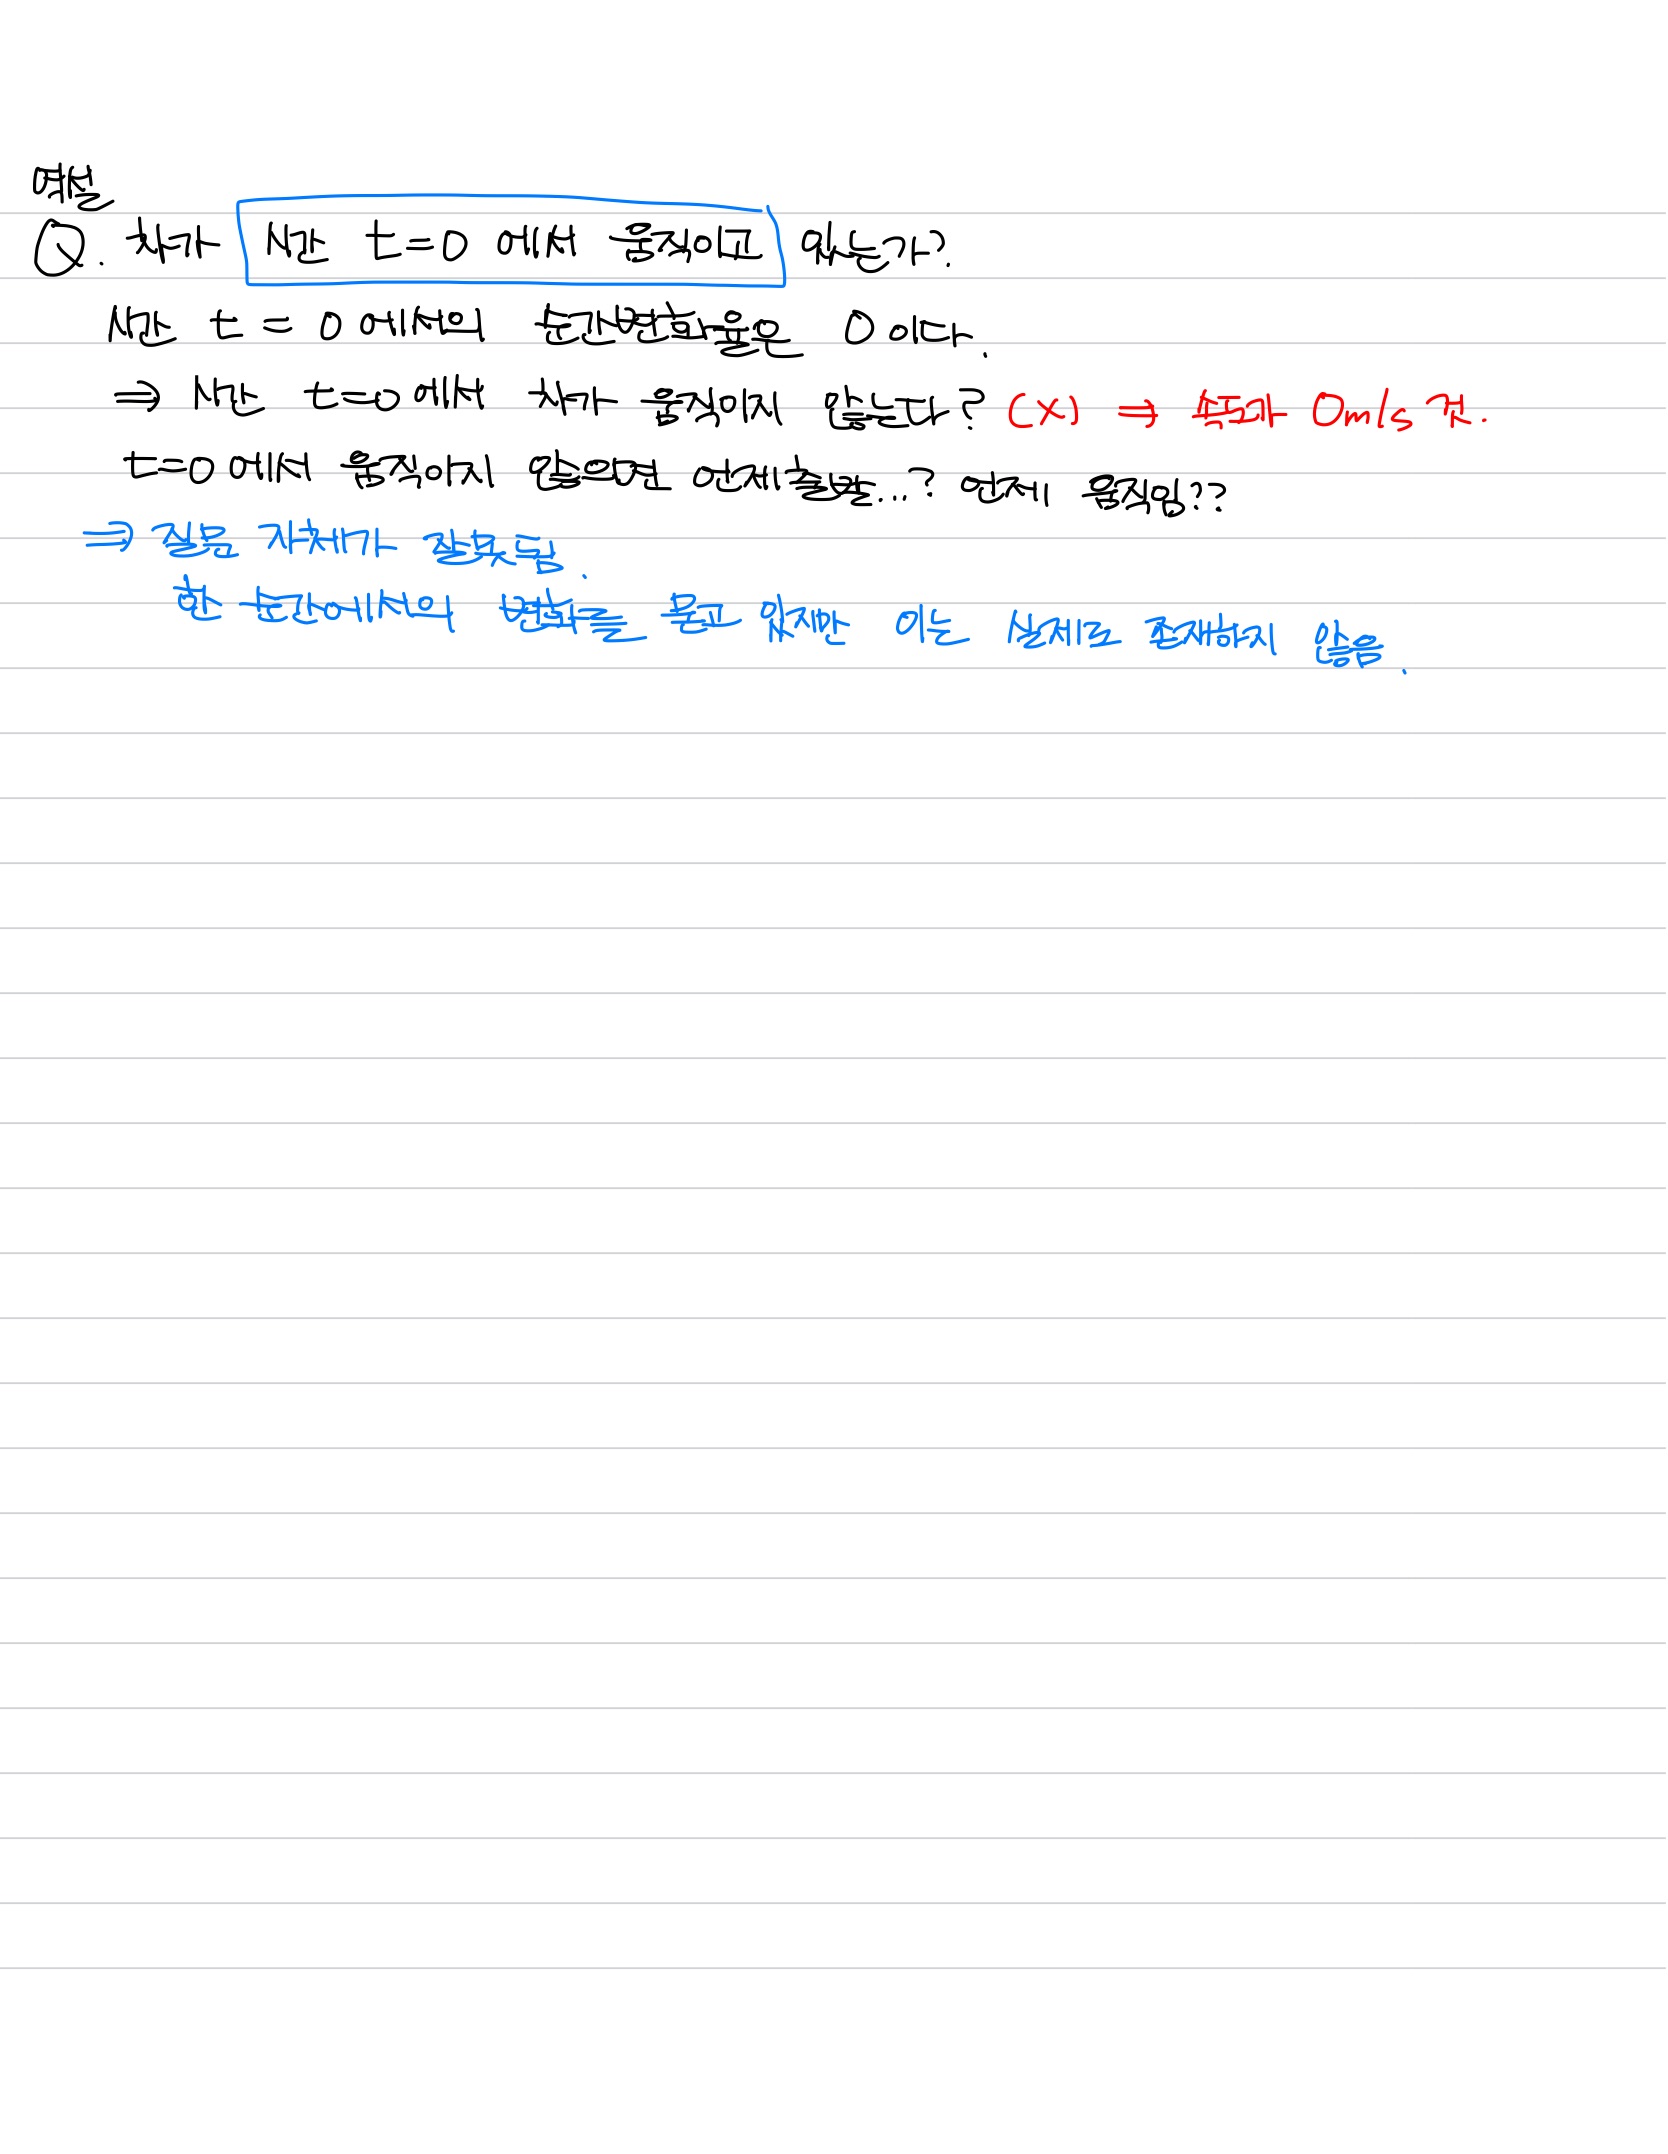 역설
Q. 차가 시간 t=0 에서 움직이고 있는가?
시간 t = 0 에서의 순간변화율은 0 이다.
⇒ 시간 t=0 에서 차가 움직이지 않는다? (X) ⇒ 속도가 0m/s 것.
t=0 에서 움직이지 않으면 언제 출발...? 언제 움직임??
⇒ 질문 자체가 잘못됨.
한 순간에서의 변화를 묻고 있지만 이는 실제로 존재하지 않음.